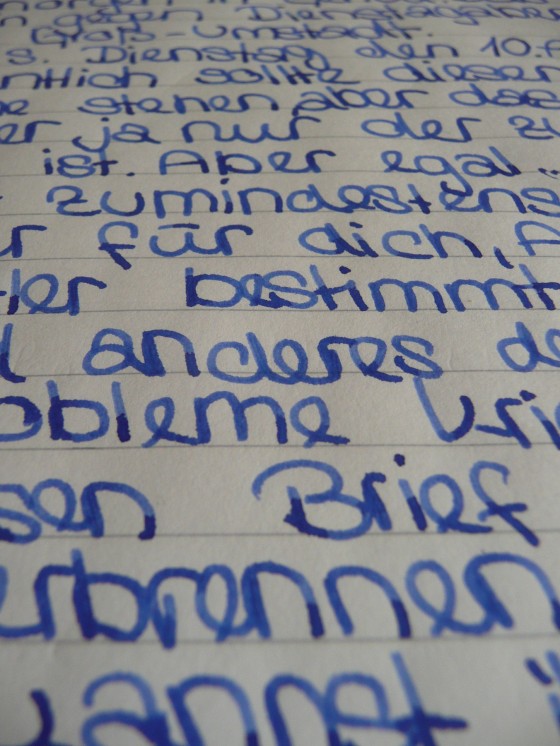 gegen Dienstaufgabe
Groß-Umstadt.
s. Dienstag den 10.
ntlich sollte dieser
stehen aber das
er ja nur der zu
ist. Aber egal..
zumindestens
r für dich, A
tler bestimmt
l anderes de
obleme kri
sen Brief
erbrennen
kannst ü